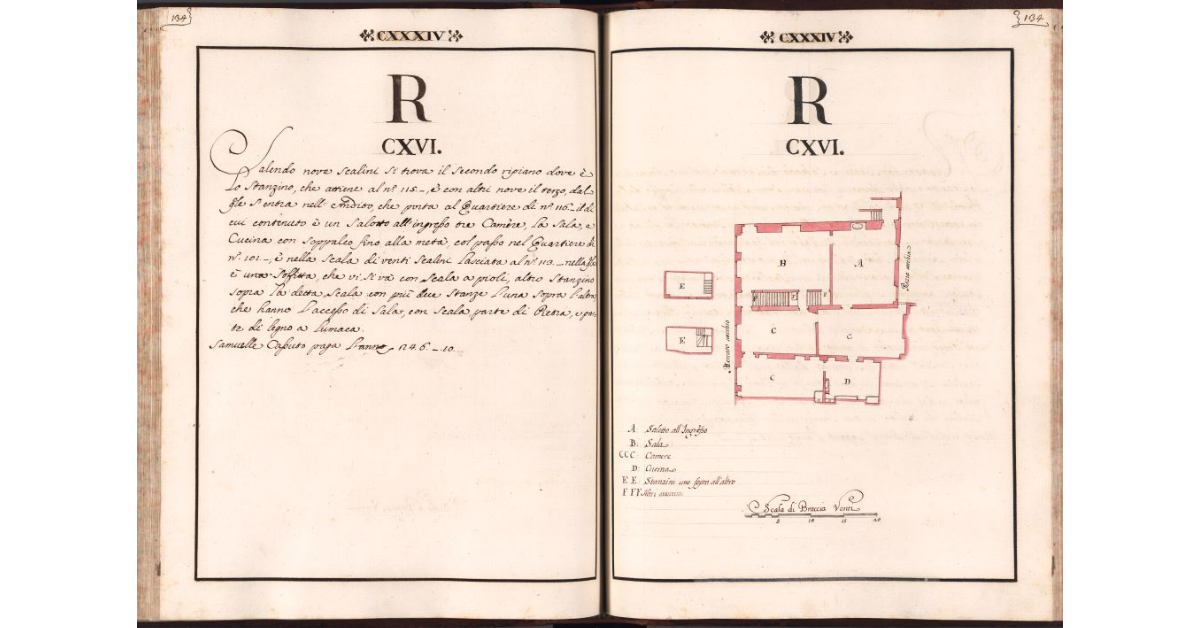 134
CXXXIV
R
CXVI.
Salendo nove Scalini si trova il Secondo ripiano dove è
lo Stanzino, che attiene al nº 115_, è con altri nove il terzo, dal
qle S'entra nell'Andito, che porta al Quartiere di nº 116_ il di
cui continuto è un Salotto all'ingresso tre Camere, la Sala, e
Cucina con Soppalco fino alla metà, col passo nel Quartiere di
nº 101_, è nella Scala di venti Scalini lasciata al nº 113_ nella qle
è una Soffitta, che vi si và con Scala a pioli, altro Stanzino
sopra la detta Scala con più due Stanze l'una sopra l'altra
che hanno l'accesso di Sala, con Scala parte di Pietra, e par
te di legno a lumaca.
Samuelle Caputo paga l'anno 124.6_10
134
CXXXIV
R
CXVI.
B
A
E
F
F
E
C
C
C
D
Mercato vecchio
A. Salotto all'Ingresso
B. Sala
CCC. Camere
D. Cucina
E E. Stanzini uno sopra all'altro
F F F. Altri
Scala di Braccia Venti
5 10 15 20